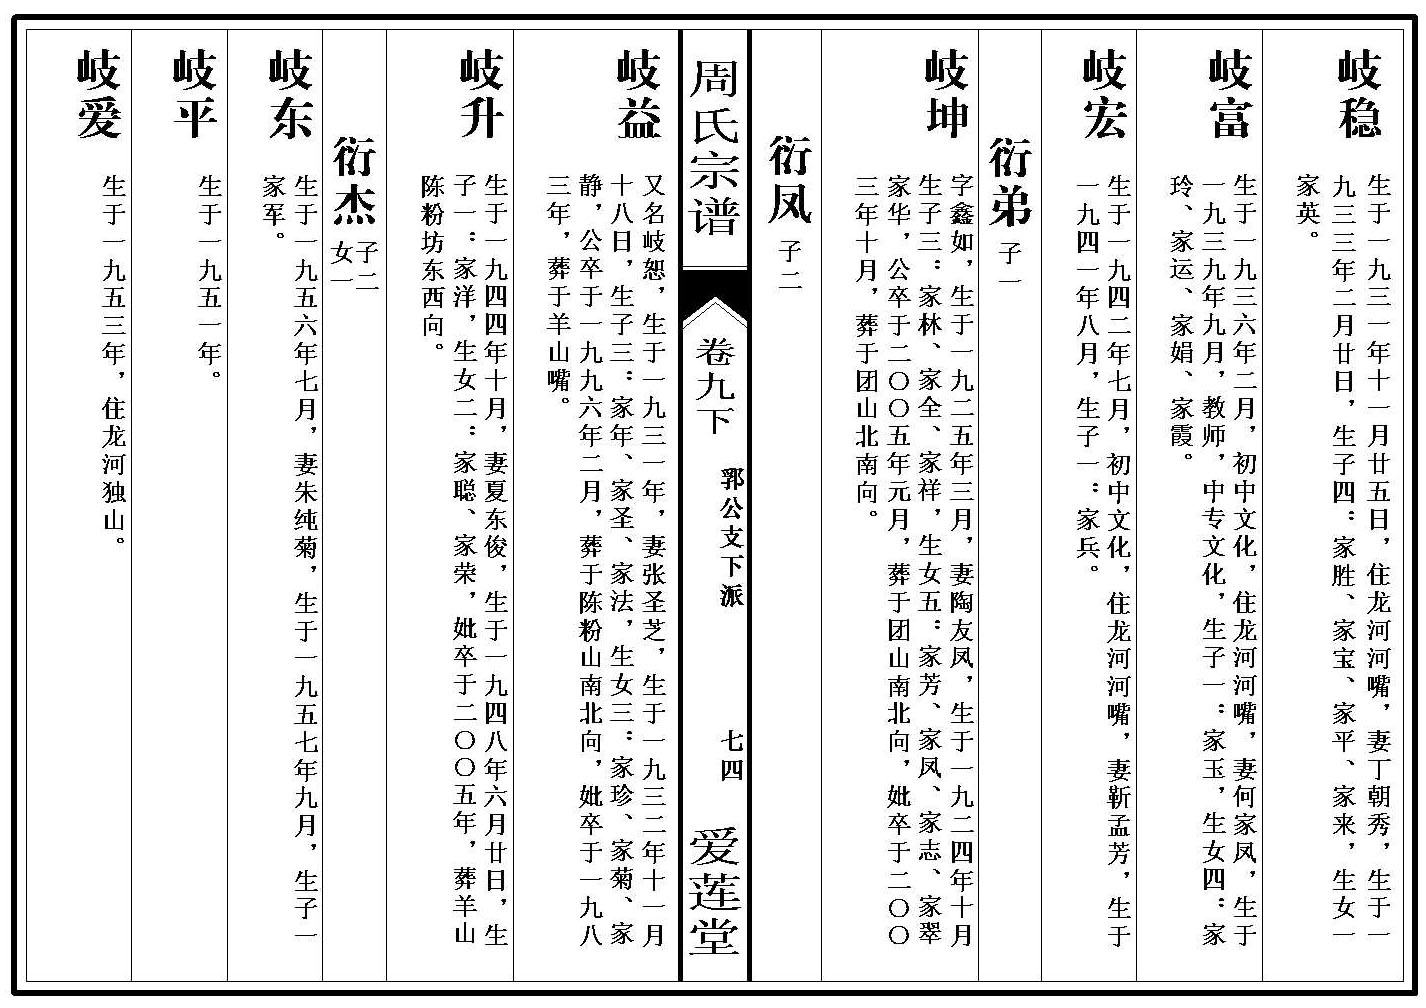 岐稳
生于一九三一年十一月廿五日，住龙河河嘴，妻丁朝秀，生于一
九三三年二月廿日，生子四：家胜、家宝、家平、家来，生女一
家英。
岐富
生于一九三六年二月，初中文化，住龙河河嘴，妻何家凤，生于
一九三九年九月，教师，中专文化，生子一：家玉，生女四：家
玲、家运、家娟、家霞。
岐宏
生于一九四二年七月，初中文化，住龙河河嘴，妻靳孟芳，生于
一九四一年八月，生子一：家兵。
衍弟
子一
岐坤
字鑫如，生于一九二五年三月，妻陶友凤，生于一九二四年十月
生子三：家林、家全、家祥，生女五：家芳、家凤、家志、家翠
家华，公卒于二〇〇五年元月，葬于团山南北向，妣卒于二〇〇
三年十月，葬于团山北南向。
衍凤
子二
周氏宗谱
卷九下
郭公支下派
七四
爱莲堂
岐益
又名岐恕，生于一九三一年，妻张圣芝，生于一九三二年十一月
十八日，生子三：家年、家圣、家法，生女三：家珍、家菊、家
静，公卒于一九九六年二月，葬于陈粉山南北向，妣卒于一九八
三年，葬于羊山嘴。
岐升
生于一九四四年十月，妻夏东俊，生于一九四八年六月廿日，生
子一：家洋，生女二：家聪、家荣，妣卒于二〇〇五年，葬羊山
陈粉坊东西向。
衍杰
子二
女一
岐东
生于一九五六年七月，妻朱纯菊，生于一九五七年九月，生子一
家军。
岐平
生于一九五一年。
岐爱
生于一九五三年，住龙河独山。